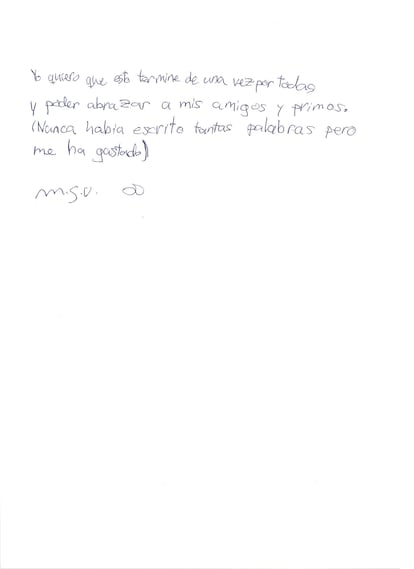 Yo quiero que esto termine de una vez por todas
y poder abrazar a mis amigos y primos.
(Nunca habia escrito tantas palabras pero
me ha gustado)
M.S.V.